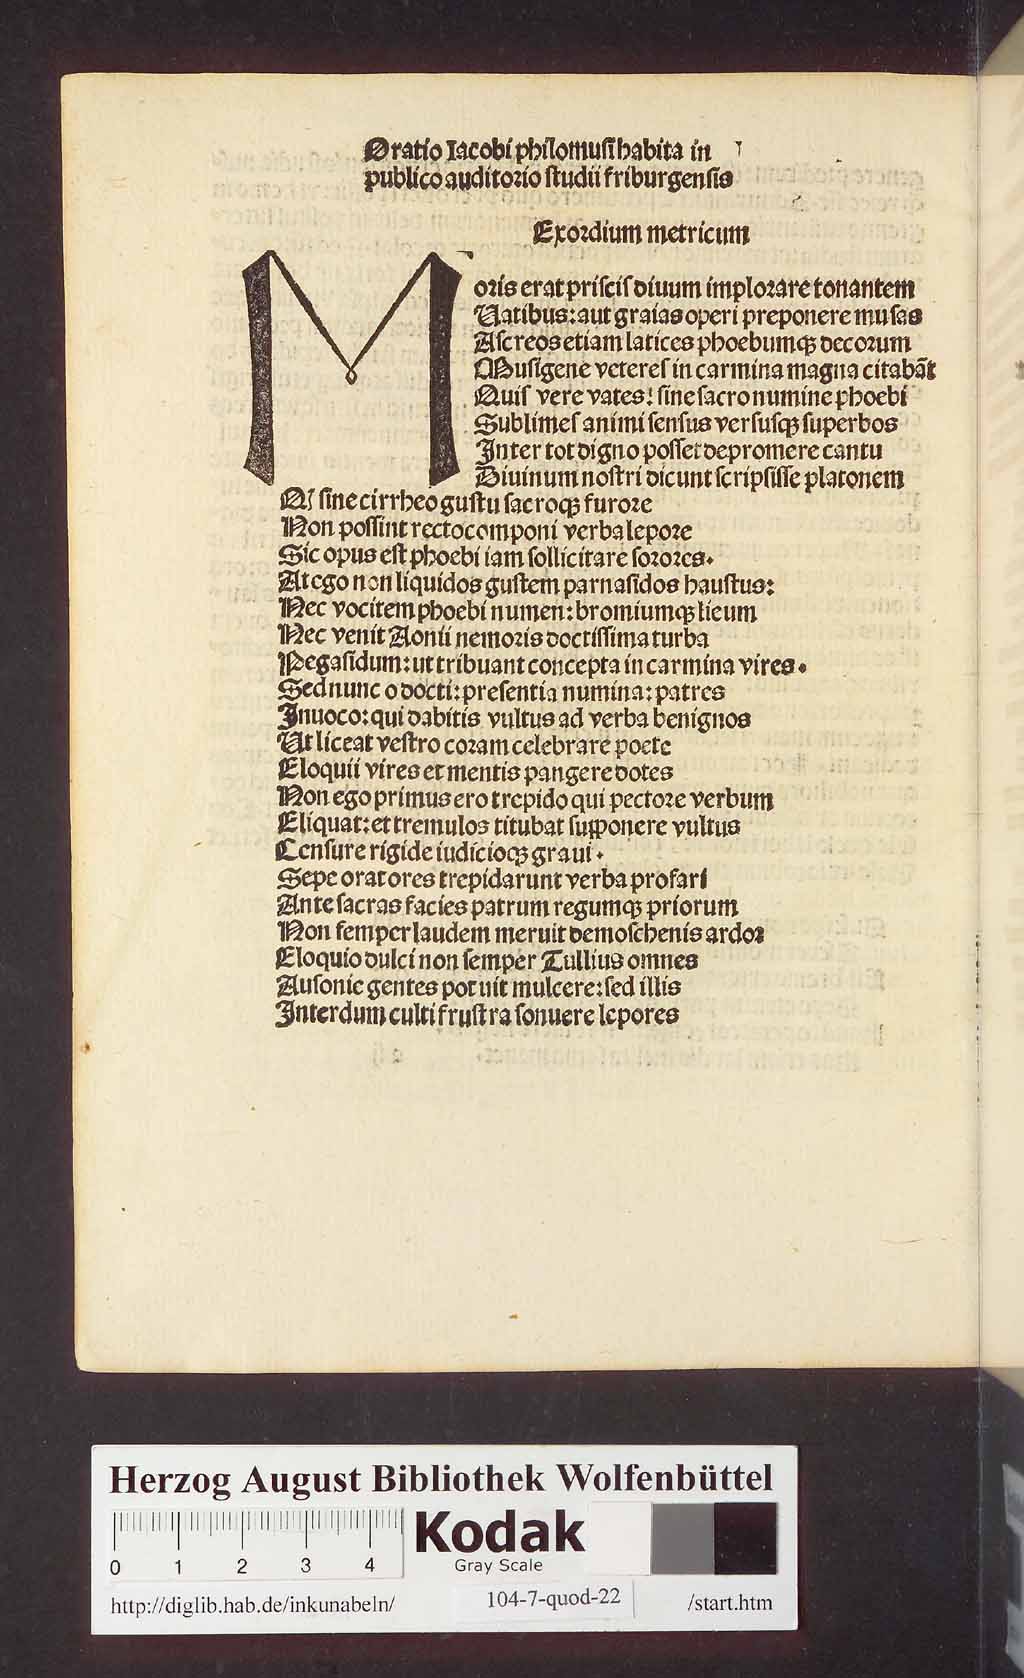 Oratio Iacobi philomusi habita in
publico auditorio studii friburgensis
Exordium metricum
Moris erat priscis diuum implorare tonantem
Uatibus: aut graias operi preponere musas
Ascreos etiam latices phoebumqꝫ decorum
Musigene veteres in carmina magna citabāt
Quis vere vates! sine sacro numine phoebi
Sublimes animi sensus versusqꝫ superbos
Inter tot digno posset depromere cantu
Diuinum nostri dicunt scripsisse platonem
Qꝫ sine cirrheo gustu sacroqꝫ furore
Non possint recto componi verba lepore
Sic opus est phoebi iam sollicitare sorores.
At ego non liquidos gustem parnasidos haustus:
Nec vocitem phoebi numen: bromiumqꝫ lieum
Nec venit Aonii nemoris doctissima turba
Pegasidum: ut tribuant concepta in carmina vires.
Sed nunc o docti: presentia numina: patres
Inuoco: qui dabitis vultus ad verba benignos
Ut liceat vestro coram celebrare poete
Eloquii vires et mentis pangere dotes
Non ego primus ero trepido qui pectore verbum
Eliquat: et tremulos titubat supponere vultus
Censure rigide iudicioqꝫ graui.
Sepe oratores trepidarunt verba profari
Ante sacras facies patrum regumqꝫ priorum
Non semper laudem meruit demoschenis ardor
Eloquio dulci non semper Tullius omnes
Ausonie gentes potuit mulcere: sed illis
Interdum culti frustra sonuere lepores
Herzog August Bibliothek Wolfenbüttel
0 1 2 3 4
Kodak
Gray Scale
http://diglib.hab.de/inkunabeln/ 104-7-quod-22 /start.htm